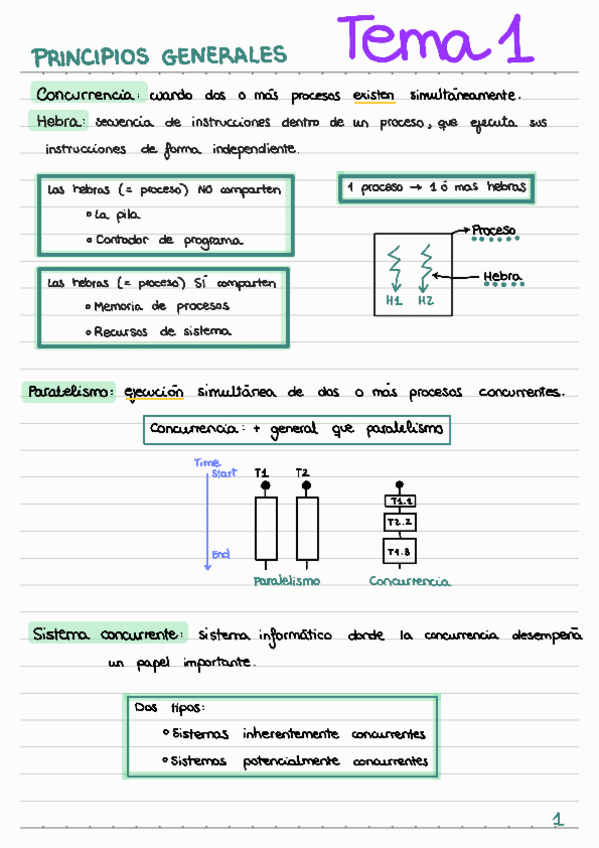 Tema 1
PRINCIPIOS GENERALES
Concurrencia: cuando dos o más procesos existen simultáneamente.
Hebra: secuencia de instrucciones dentro de un proceso, que ejecuta sus
instrucciones de forma independiente.
Las hebras (= proceso) NO comparten
• La pila
• Contador de programa
1 proceso → 1 ó mas hebras
Proceso
Hebra
H1 H2
Las hebras (= proceso) SÍ comparten
• Memoria de procesos
• Recursos de sistema
Paralelismo: ejecución simultánea de dos o más procesos concurrentes.
Concurrencia: + general que paralelismo
Time
Start
T1 T2
T1.1
T2.2
T1.3
End
Paralelismo Concurrencia
Sistema concurrente: sistema informático donde la concurrencia desempeña
un papel importante.
Dos tipos:
• Sistemas inherentemente concurrentes
• Sistemas potencialmente concurrentes
1